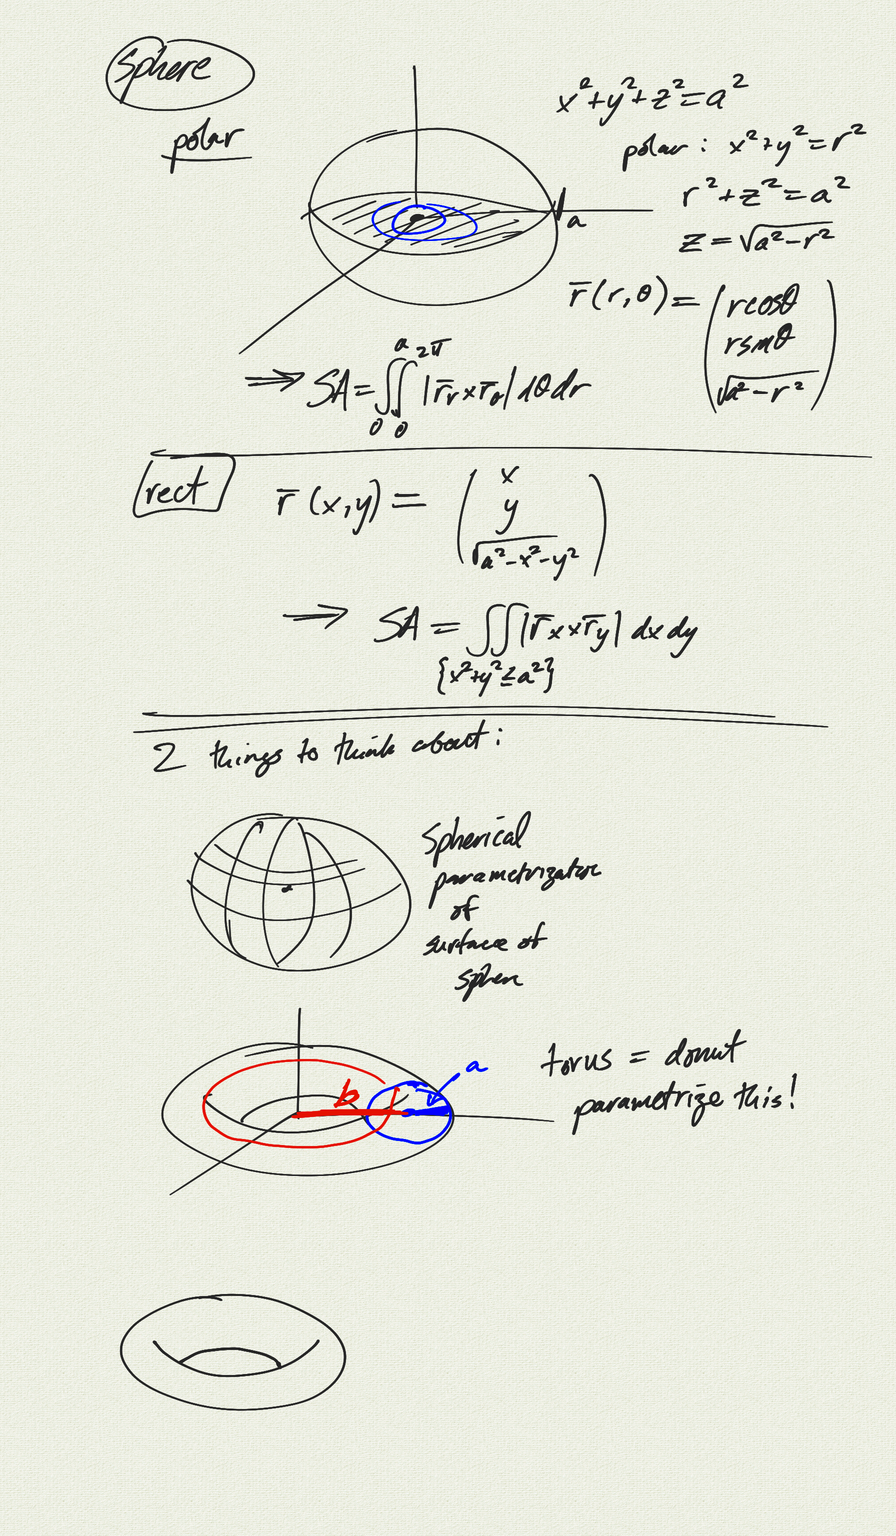 Sphere
polar
x²+y²+z²=a²
polar: x²+y²=r²
r²+z²=a²
z=√(a²-r²)
a
r̄(r,θ)= (rcosθ
rsinθ
√(a²-r²))
⇒ SA=∫₀ᵃ∫₀²π |r̄ᵣ×r̄θ| dθdr
rect
r̄(x,y)= (x
y
√(a²-x²-y²))
→ SA = ∬|r̄ₓ×r̄y| dxdy
{x²+y²≤a²}
2 things to think about:
Spherical
parametrization
of
surface of
sphere
b
a
torus = donut
parametrize this!